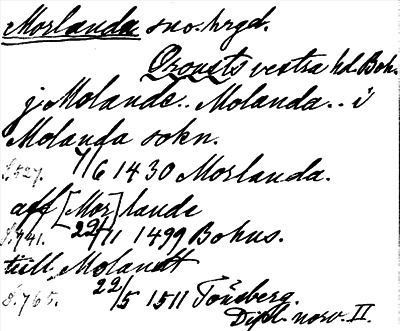 Morlanda sno. hrgd.
Orousts vestra hd. Boh.
j Molande.. Molanda.. i
Molanda sokn.
S. 527. 7/6 1430 Morlanda.
aff [Mor]lande
S. 741. 22/11 1499 Bohus.
till Molandt
S. 765. 22/5 1511 Tønsberg.
Dipl. norv. II.